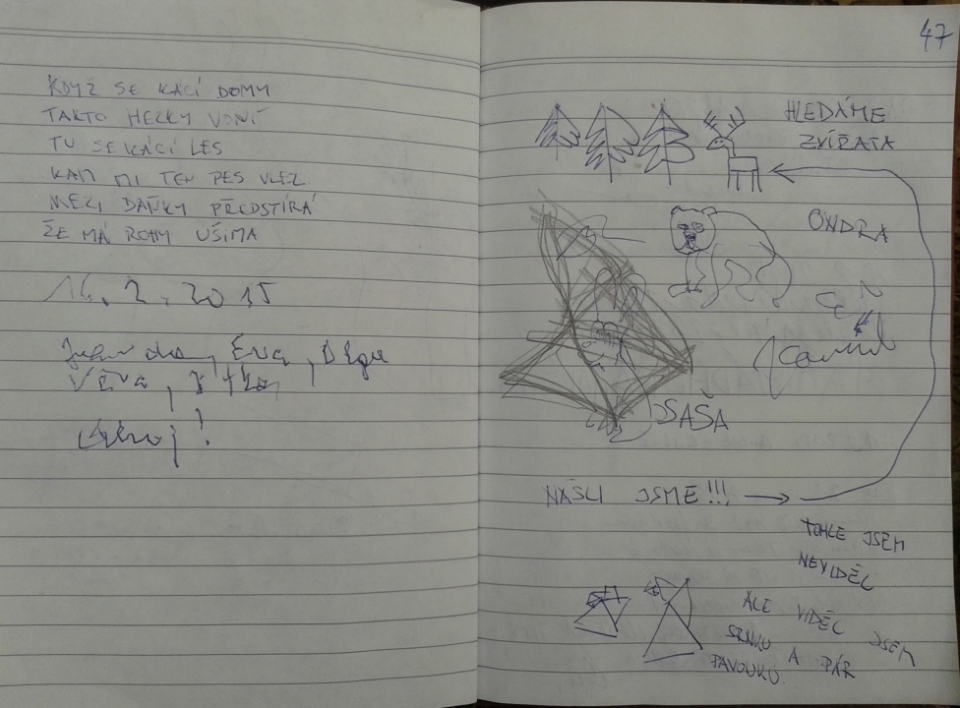 KDYŽ SE KÁCÍ DOMY
TAKTO HEZKY VONÍ
TU SE KÁCÍ LES
KAM MI TEN PES VLEZ
MEZI DAŇKY PŘEDSTÍRÁ
ŽE MÁ ROHY UŠIMA
14. 2. 2015
Eva,
Věra,
Ahoj!
47
HLEDÁME
ZVÍŘATA
ONDRA
SAŠA
NAŠLI JSME!!!
TOHLE JSEM
NEVIDĚL
ALE VIDĚL JSEM
SRNKU A PÁR
PAVOUKŮ.